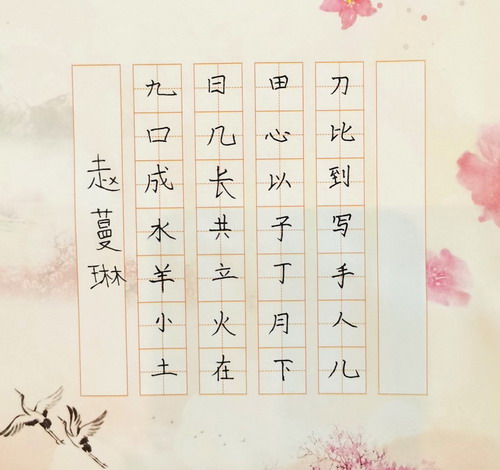 刀比到写手人儿
田心以子丁月下
日几长共立火在
九口成水羊小土
赵蔓琳